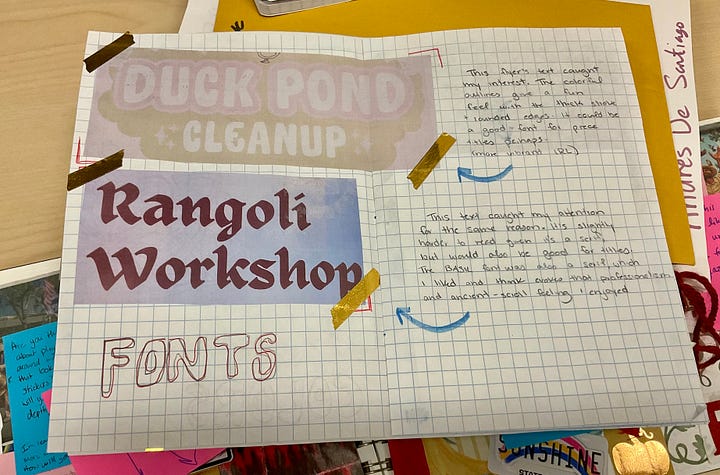 DUCK POND
CLEANUP
This flyer's text caught
my interest. The colorful
outlines give a fun
feel with the thick
+ rounded edges. It could be
a good font for piece
titles perhaps
(more vibrant IRL)
Rangoli
Workshop
This text caught my attention
for the same reason. It's slightly
harder to read given it's a serif
but would also be good for titles.
The BASK font was also a serif which
I liked and think evokes that professionalism
and ancient-scroll feeling I enjoyed
FONTS
Andres De Santiago
Are you
about
around
that look
stickers
will
depth
SUNSHINE